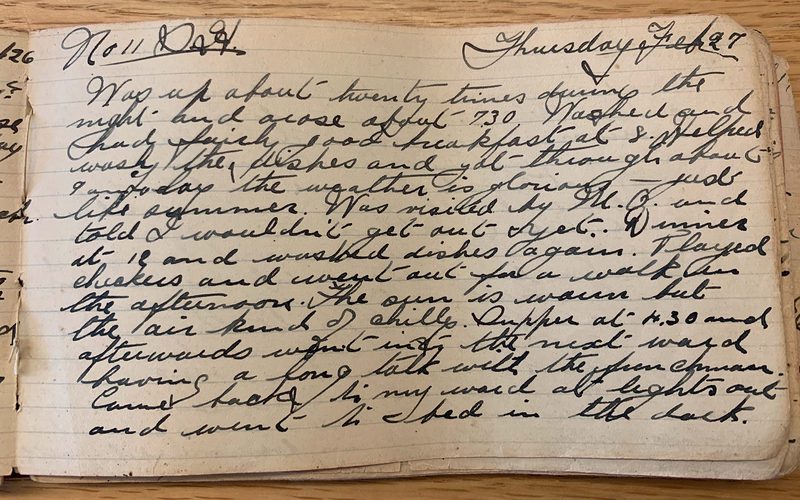 No 11 D.S.H. Thursday Feb 27
Was up about twenty times during the
night and arose about 7.30. Washed and
had fairly good breakfast at 8. Helped
wash the dishes and got through about
9 am today the weather is glorious – just
like summer. Was visited by M.O. and
told I wouldn't get out yet. Dinner
at 12 and washed dishes again. Played
checkers and went out for a walk in
the afternoon. The sun is warm but
the air kind of chills. Supper at 4.30 and
afterwards went into the next ward
having a long talk with the frenchman.
Came back to my ward at lights out
and went to bed in the dark.
126